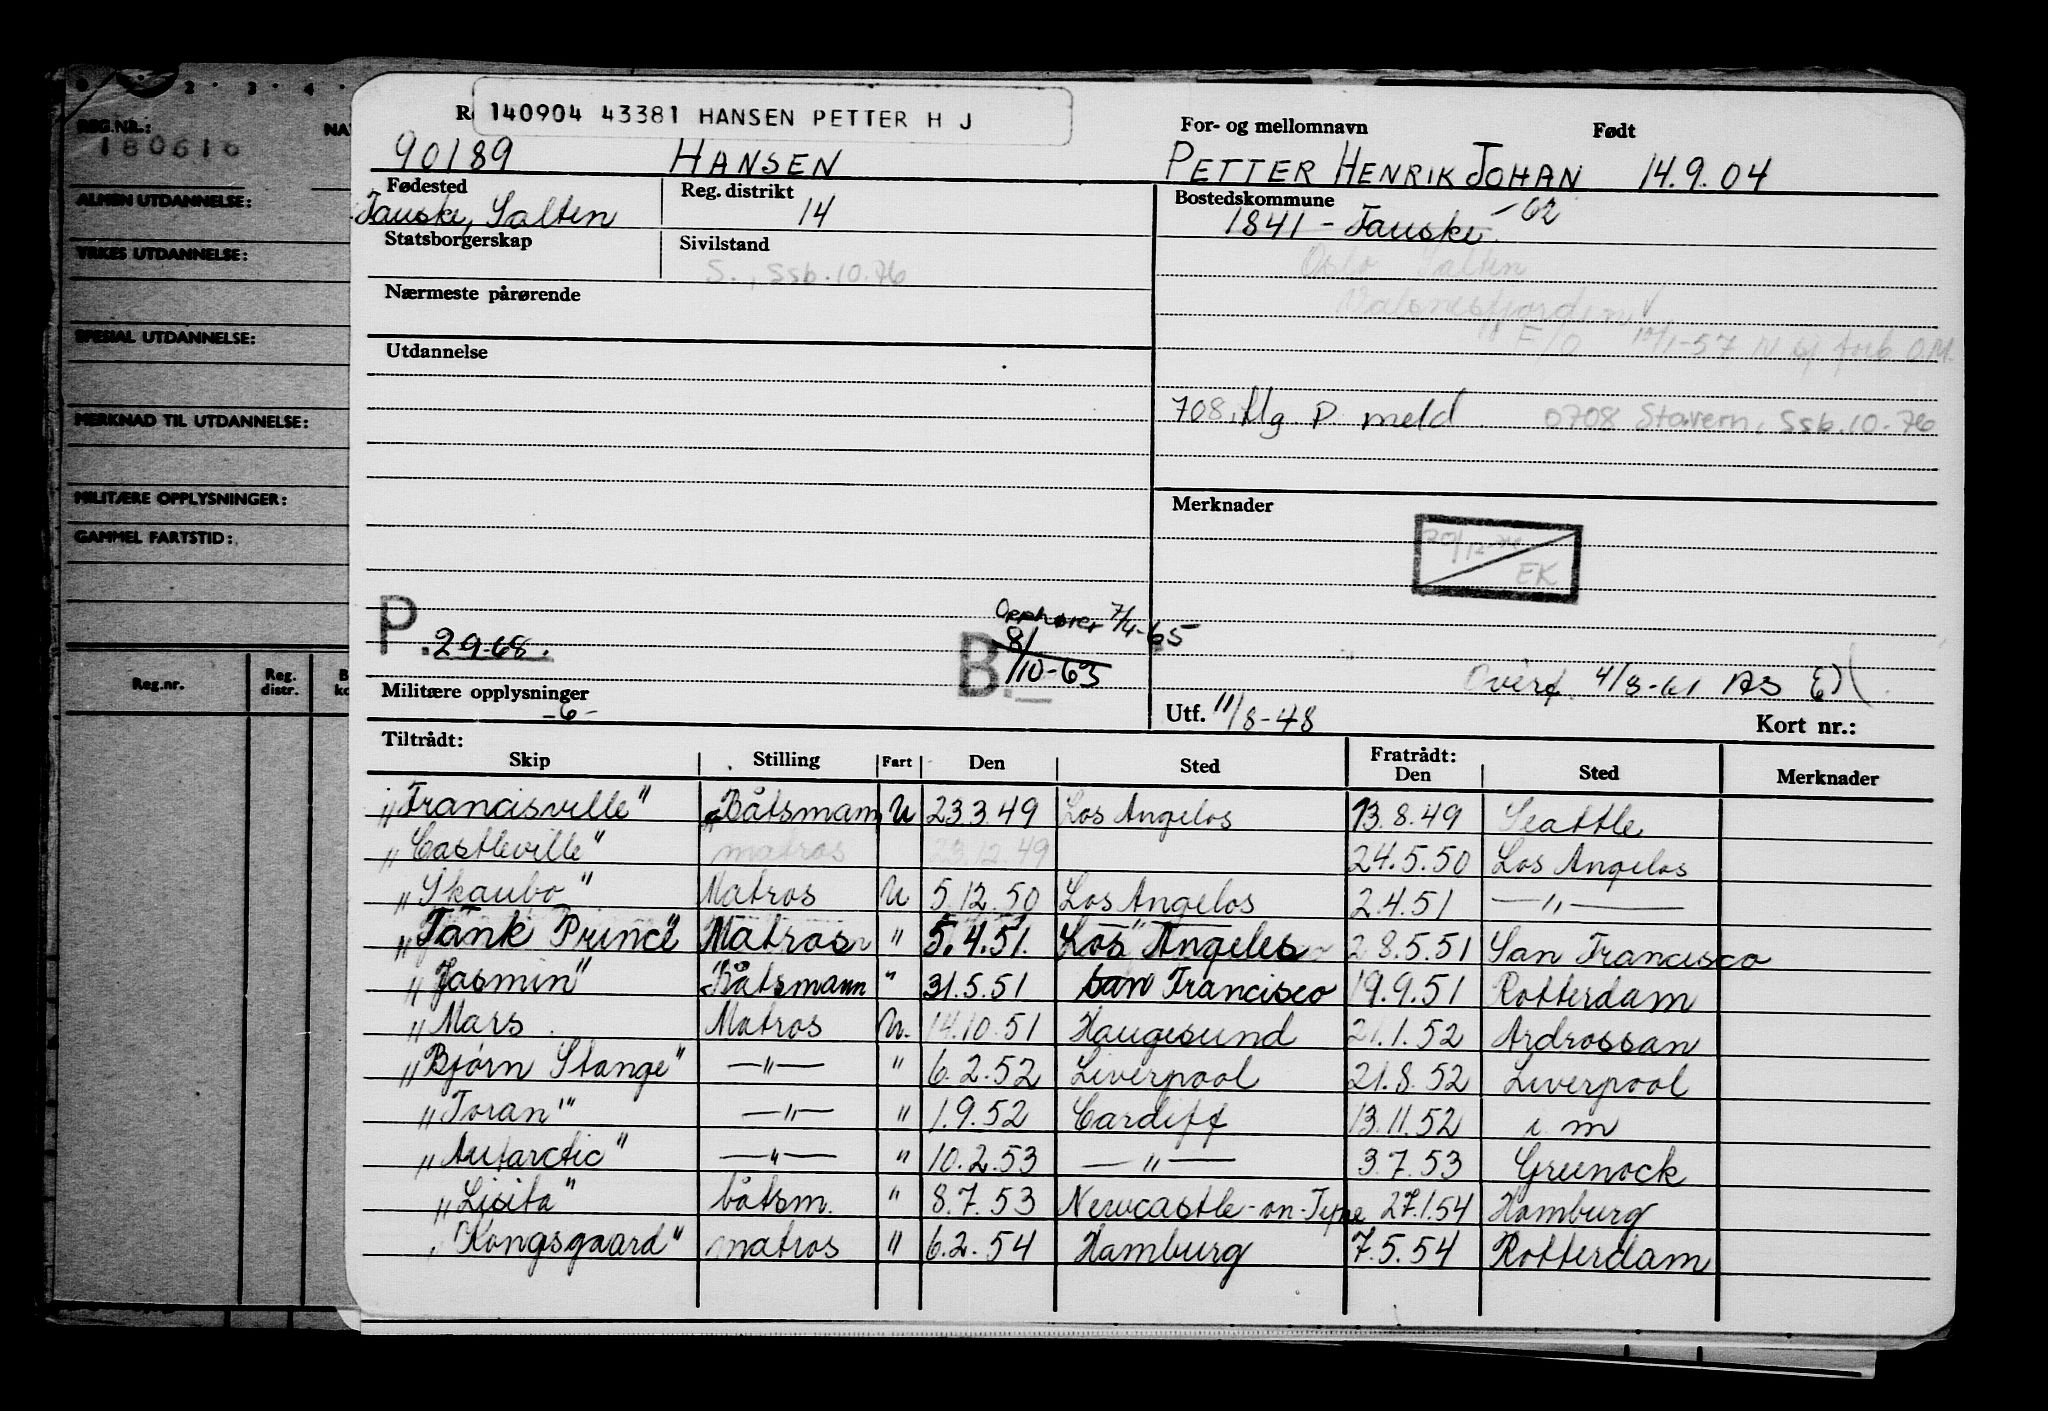 0 · 2 · 3 · 4 ·
REG.NR.: NA
180616
ALMEN UTDANNELSE:
YRKES UTDANNELSE:
SPESIAL UTDANNELSE:
MERKNAD TIL UTDANNELSE:
MILITÆRE OPPLYSNINGER:
GAMMEL FARTSTID:
Reg.nr. Reg. distr. B ko
R 140904 43381 HANSEN PETTER H J For- og mellomnavn Født
90189 HANSEN PETTER HENRIK JOHAN 14.9.04
Fødested Reg. distrikt Bostedskommune
Fauske, Salten 14 1841 - Fauske. -62
Statsborgerskap Sivilstand Oslo Salten
S., Ssb.10.76
Nærmeste pårørende Valnesfjorden
11 E/O 14/1-57 N af. Arb. O.M.
Utdannelse
708, flg. P. meld. 0708 Stavern, Ssb.10.76
Merknader
20/12-76
EK
P. 29-68. B. Opphører 7/4-65
8/10-63
Overf. 4/8-61 AS
Militære opplysninger Utf. 11/8-48 Kort nr.:
-6-
Tiltrådt: Fratrådt:
Skip Stilling Fart Den Sted Den Sted Merknader
"Francisville" Båtsmann U 23.3.49 Los Angelos 13.8.49 Seattle
"Castleville" matros 23.12.49 24.5.50 Los Angelos
"Skaubo" Matros U 5.12.50 Los Angelos 2.4.51 —"—
"Tank Prince" Matros " 5.4.51. Los Angeles 28.5.51 San Francisco
"Jasmin" Båtsmann " 31.5.51 San Francisco 19.9.51 Rotterdam
"Mars. Matros U. 14.10.51 Haugesund 21.1.52 Ardrossan
"Bjørn Stange" —"— " 6.2.52 Liverpool 21.8.52 Liverpool
"Toran" —"— " 1.9.52 Cardiff 13.11.52 i m
"Antarctic" —"— " 10.2.53 —"— 3.7.53 Greenock
"Lisita" båtsm. " 8.7.53 Newcastle-on-Tyne 27.1.54 Hamburg
"Kongsgaard" matros " 6.2.54 Hamburg 7.5.54 Rotterdam